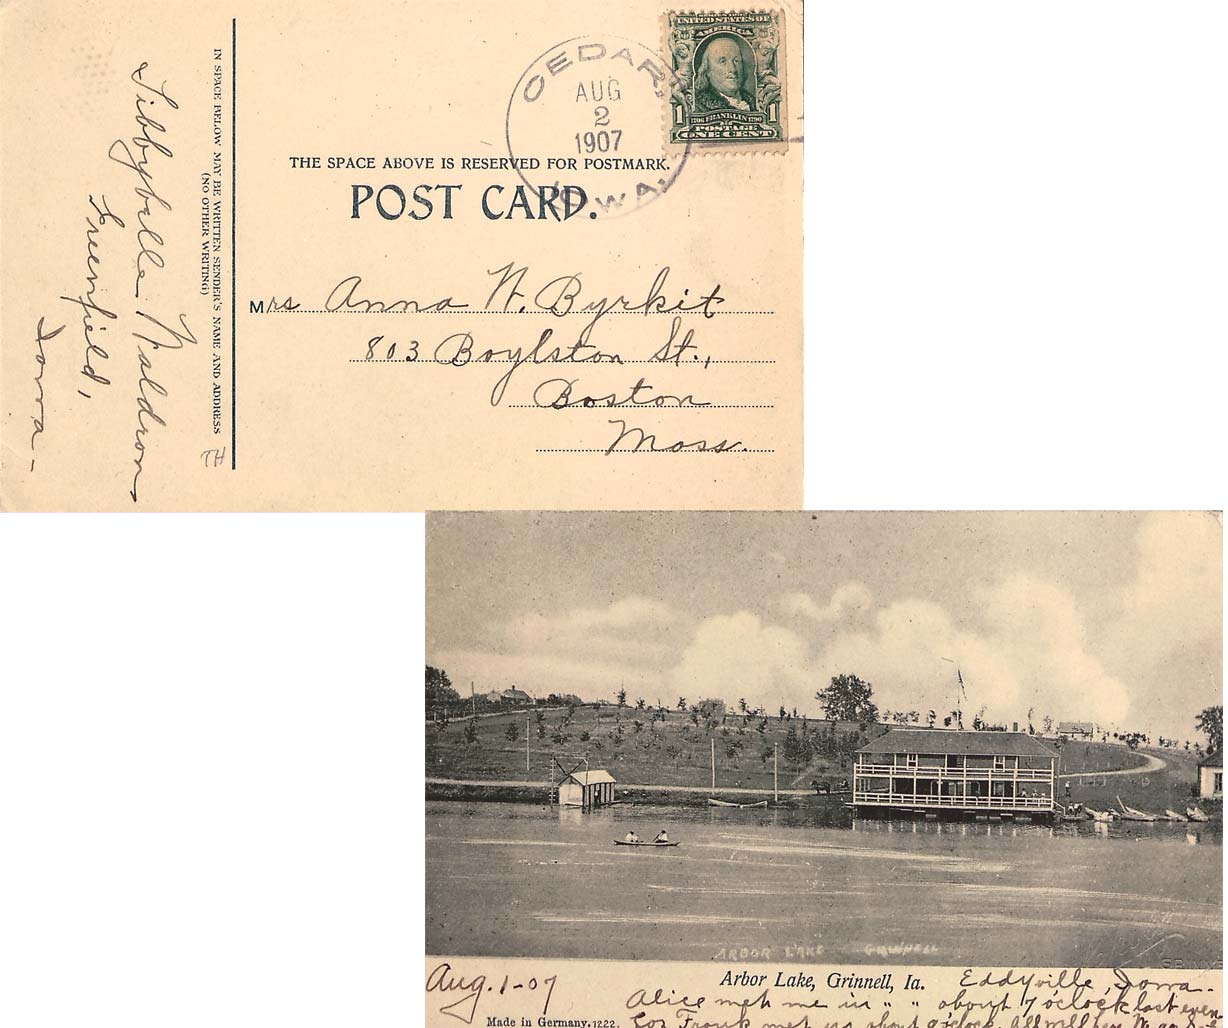 UNITED STATES OF
AMERICA
1 1
1706 FRANKLIN 1790
POSTAGE
ONE CENT
CEDAR,
AUG
2
1907
IOWA.
THE SPACE ABOVE IS RESERVED FOR POSTMARK.
POST CARD.
Mrs Anna W. Byrkit
803 Boylston St.,
Boston
Mass.
IN SPACE BELOW MAY BE WRITTEN SENDER'S NAME AND ADDRESS
(NO OTHER WRITING)
TH
Sibbybelle Waldron
Greenfield,
Iowa -
ARBOR LAKE GRINNELL
Aug. 1-07
Arbor Lake, Grinnell, Ia.
Eddyville, Iowa -
Alice met me in " " about 7 o'clock last even
Made in Germany. 1222.
Frank met us about 9 o'clock. All well